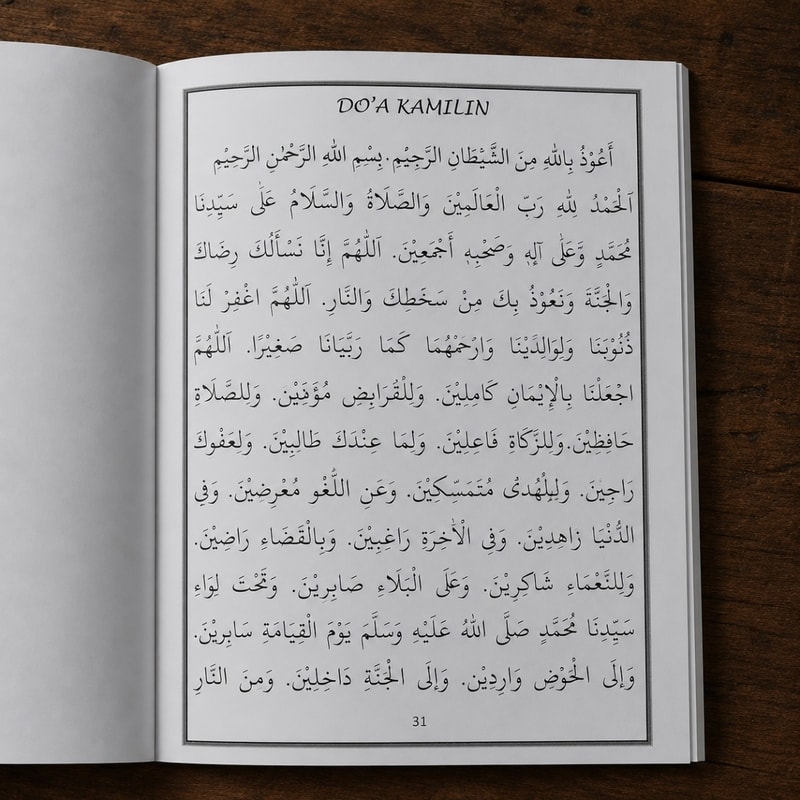 DO'A KAMILIN
أَعُوْذُ بِاللهِ مِنَ الشَّيْطَانِ الرَّجِيْمِ. بِسْمِ اللهِ الرَّحْمٰنِ الرَّحِيْمِ
اَلْحَمْدُ لِلّٰهِ رَبِّ الْعَالَمِيْنَ وَالصَّلَاةُ وَالسَّلَامُ عَلٰى سَيِّدِنَا
مُحَمَّدٍ وَّعَلٰى آلِهٖ وَصَحْبِهٖ أَجْمَعِيْنَ. اَللّٰهُمَّ إِنَّا نَسْأَلُكَ رِضَاكَ
وَالْجَنَّةَ وَنَعُوْذُ بِكَ مِنْ سَخَطِكَ وَالنَّارِ. اَللّٰهُمَّ اغْفِرْ لَنَا
ذُنُوْبَنَا وَلِوَالِدَيْنَا وَارْحَمْهُمَا كَمَا رَبَّيَانَا صَغِيْرًا. اَللّٰهُمَّ
اجْعَلْنَا بِالْإِيْمَانِ كَامِلِيْنَ. وَلِلْقَرَابِضِ مُؤَفِّيْن. وَلِلصَّلَاةِ
حَافِظِيْنَ. وَلِلزَّكَاةِ فَاعِلِيْنَ. وَلِمَا عِنْدَكَ طَالِبِيْنَ. وَلِعَفْوِكَ
رَاجِيْنَ. وَلِلْهُدٰى مُتَمَسِّكِيْنَ. وَعَنِ اللَّغْوِ مُعْرِضِيْنَ. وَفِي
الدُّنْيَا زَاهِدِيْنَ. وَفِي الْاٰخِرَةِ رَاغِبِيْنَ. وَبِالْقَضَاءِ رَاضِيْنَ.
وَلِلنَّعْمَاءِ شَاكِرِيْنَ. وَعَلَى الْبَلَاءِ صَابِرِيْنَ. وَتَحْتَ لِوَاءِ
سَيِّدِنَا مُحَمَّدٍ صَلَّى اللهُ عَلَيْهِ وَسَلَّمَ يَوْمَ الْقِيَامَةِ سَابِرِيْنَ.
وَإِلَى الْحَوْضِ وَارِدِيْن. وَإِلَى الْجَنَّةِ دَاخِلِيْنَ. وَمِنَ النَّارِ
31